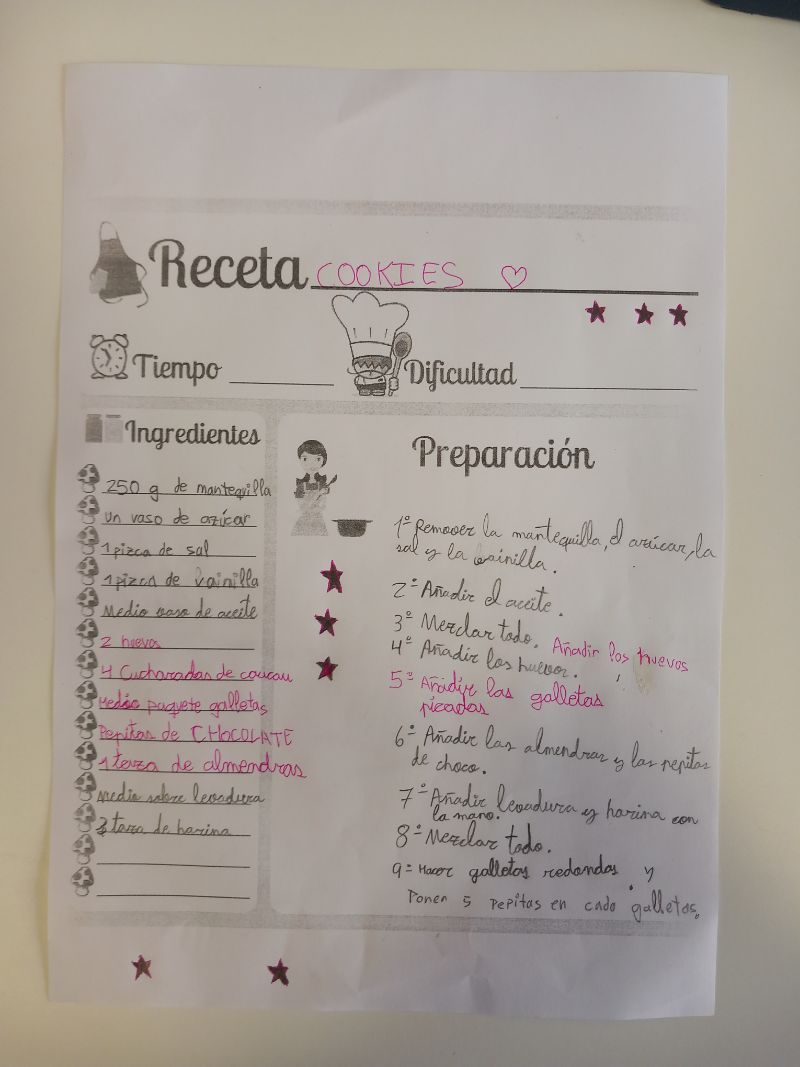 Receta COOKIES
Tiempo
Dificultad
Ingredientes
250 g de mantequilla
Un vaso de azúcar
1 pizca de sal
1 pizca de vainilla
Medio vaso de aceite
2 huevos
4 Cucharadas de caucau
Medio paquete galletas
Pepitas de CHOCOLATE
1 taza de almendras
Medio sobre levadura
3 taza de harina
Preparación
1º Remover la mantequilla, el azúcar, la
sal y la vainilla.
2º Añadir el aceite.
3º Mezclar todo. Añadir los huevos
4º Añadir los huevos.
5º Añadir las galletas
picadas
6º Añadir las almendras y las pepitas
de choco.
7º Añadir levadura y harina con
la mano.
8º Mezclar todo.
9º Hacer galletas redondas. y
Poner 5 Pepitas en cada galletas.